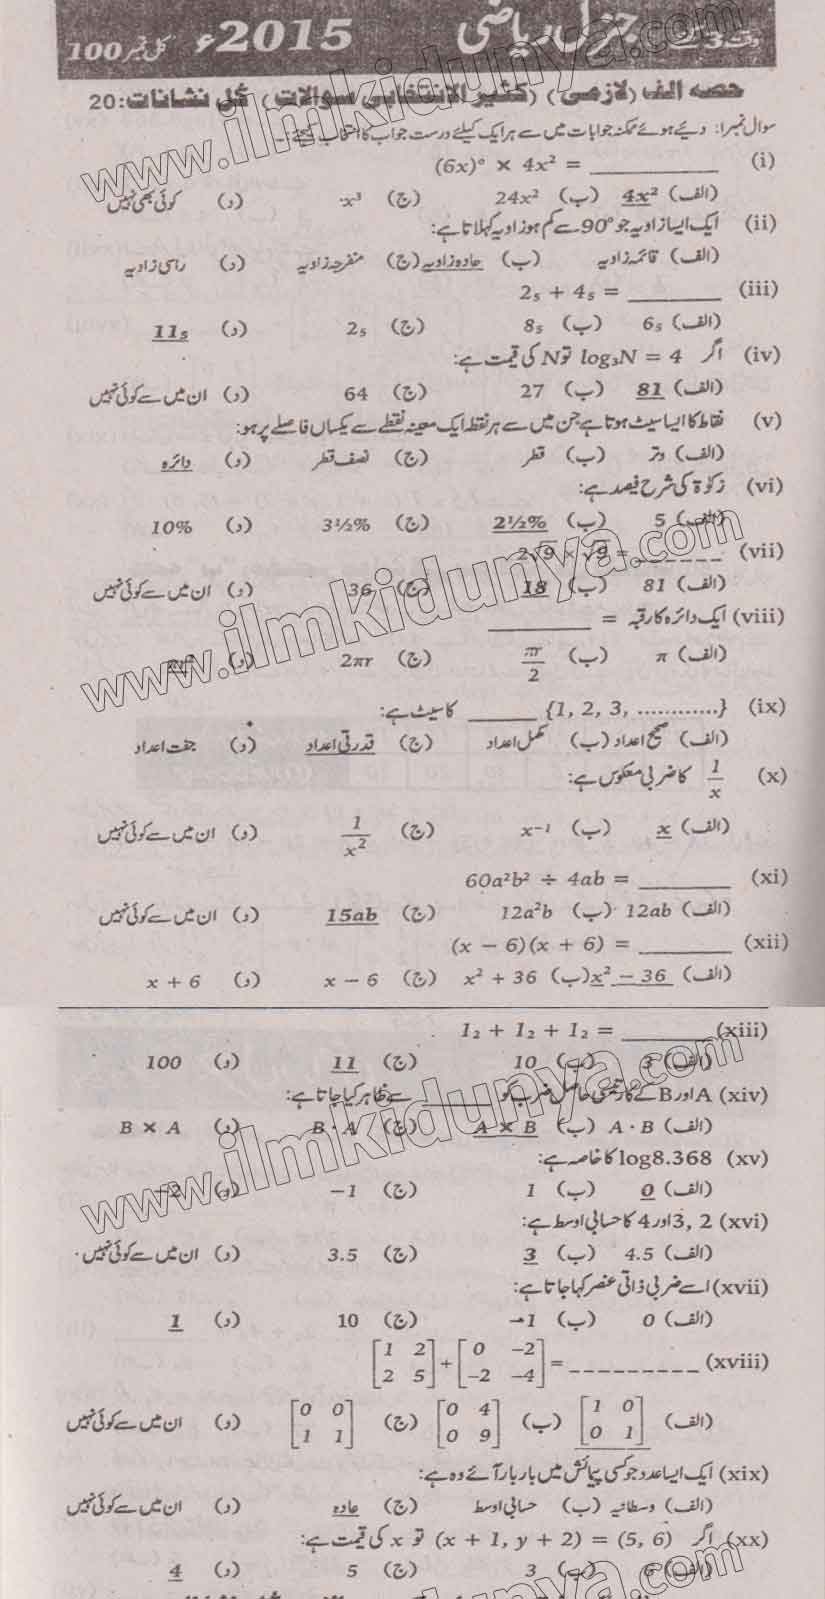 وقت: 3 جنرل ریاضی 2015ء کل نمبر 100
حصہ الف (لازمی) (کثیر الانتخابی سوالات) کُل نشانات: 20
سوال نمبر1: دیئے ہوئے ممکنہ جوابات میں سے ہر ایک کیلئے درست جواب کا انتخاب کیجئے۔
(i) (6x)° × 4x² = ________
(الف) 4x² (ب) 24x² (ج) x³ (د) کوئی بھی نہیں
(ii) ایک ایسا زاویہ جو 90° سے کم ہو زاویہ کہلاتا ہے:
(الف) قائمہ زاویہ (ب) حادہ زاویہ (ج) منفرجہ زاویہ (د) راسی زاویہ
(iii) 2₅ + 4₅ = ________
(الف) 6₅ (ب) 8₅ (ج) 2₅ (د) 11₅
(iv) اگر log₃N = 4 تو N کی قیمت ہے:
(الف) 81 (ب) 27 (ج) 64 (د) ان میں سے کوئی نہیں
(v) نقاط کا ایسا سیٹ ہوتا ہے جن میں سے ہر نقطہ ایک معینہ نقطے سے یکساں فاصلے پر ہو:
(الف) وتر (ب) قطر (ج) نصف قطر (د) دائرہ
(vi) زکوٰۃ کی شرح فیصد ہے:
(الف) 5 (ب) 2½% (ج) 3½% (د) 10%
(vii) 2√9 × √9 = ______
(الف) 81 (ب) 18 (ج) 36 (د) ان میں سے کوئی نہیں
(viii) ایک دائرہ کا رقبہ = ________
(الف) π (ب) πr/2 (ج) 2πr (د) πr²
(ix) {1, 2, 3, ............} ______ کا سیٹ ہے:
(الف) صحیح اعداد (ب) مکمل اعداد (ج) قدرتی اعداد (د) جفت اعداد
(x) 1/x کا ضربی معکوس ہے:
(الف) x (ب) x⁻¹ (ج) 1/x² (د) ان میں سے کوئی نہیں
(xi) 60a²b² ÷ 4ab = ________
(الف) 12ab (ب) 12a²b (ج) 15ab (د) ان میں سے کوئی نہیں
(xii) (x − 6)(x + 6) = ________
(الف) x² − 36 (ب) x² + 36 (ج) x − 6 (د) x + 6
(xiii) 1₂ + 1₂ + 1₂ = ________
(الف) 3 (ب) 10 (ج) 11 (د) 100
(xiv) A اور B کے کارتیسی حاصل ضرب کو ________ سے ظاہر کیا جاتا ہے:
(الف) A · B (ب) A × B (ج) B · A (د) B × A
(xv) log8.368 کا خاصہ ہے:
(الف) 0 (ب) 1 (ج) −1 (د) −2
(xvi) 2 ,3 اور 4 کا حسابی اوسط ہے:
(الف) 4.5 (ب) 3 (ج) 3.5 (د) ان میں سے کوئی نہیں
(xvii) اسے ضربی ذاتی عنصر کہا جاتا ہے:
(الف) 0 (ب) −1 (ج) 10 (د) 1
(xviii) [1 2; 2 5] + [0 −2; −2 −4] = _________
(الف) [1 0; 0 1] (ب) [0 4; 0 9] (ج) [0 0; 1 1] (د) ان میں سے کوئی نہیں
(xix) ایک ایسا عدد جو کسی پیمائش میں بار بار آئے وہ ہے:
(الف) وسطانیہ (ب) حسابی اوسط (ج) عادہ (د) ان میں سے کوئی نہیں
(xx) اگر (x + 1, y + 2) = (5, 6) تو x کی قیمت ہے:
(الف) 6 (ب) 3 (ج) 5 (د) 4
www.ilmkidunya.com
www.ilmkidunya.com
www.ilmkidunya.com
www.ilmkidunya.com